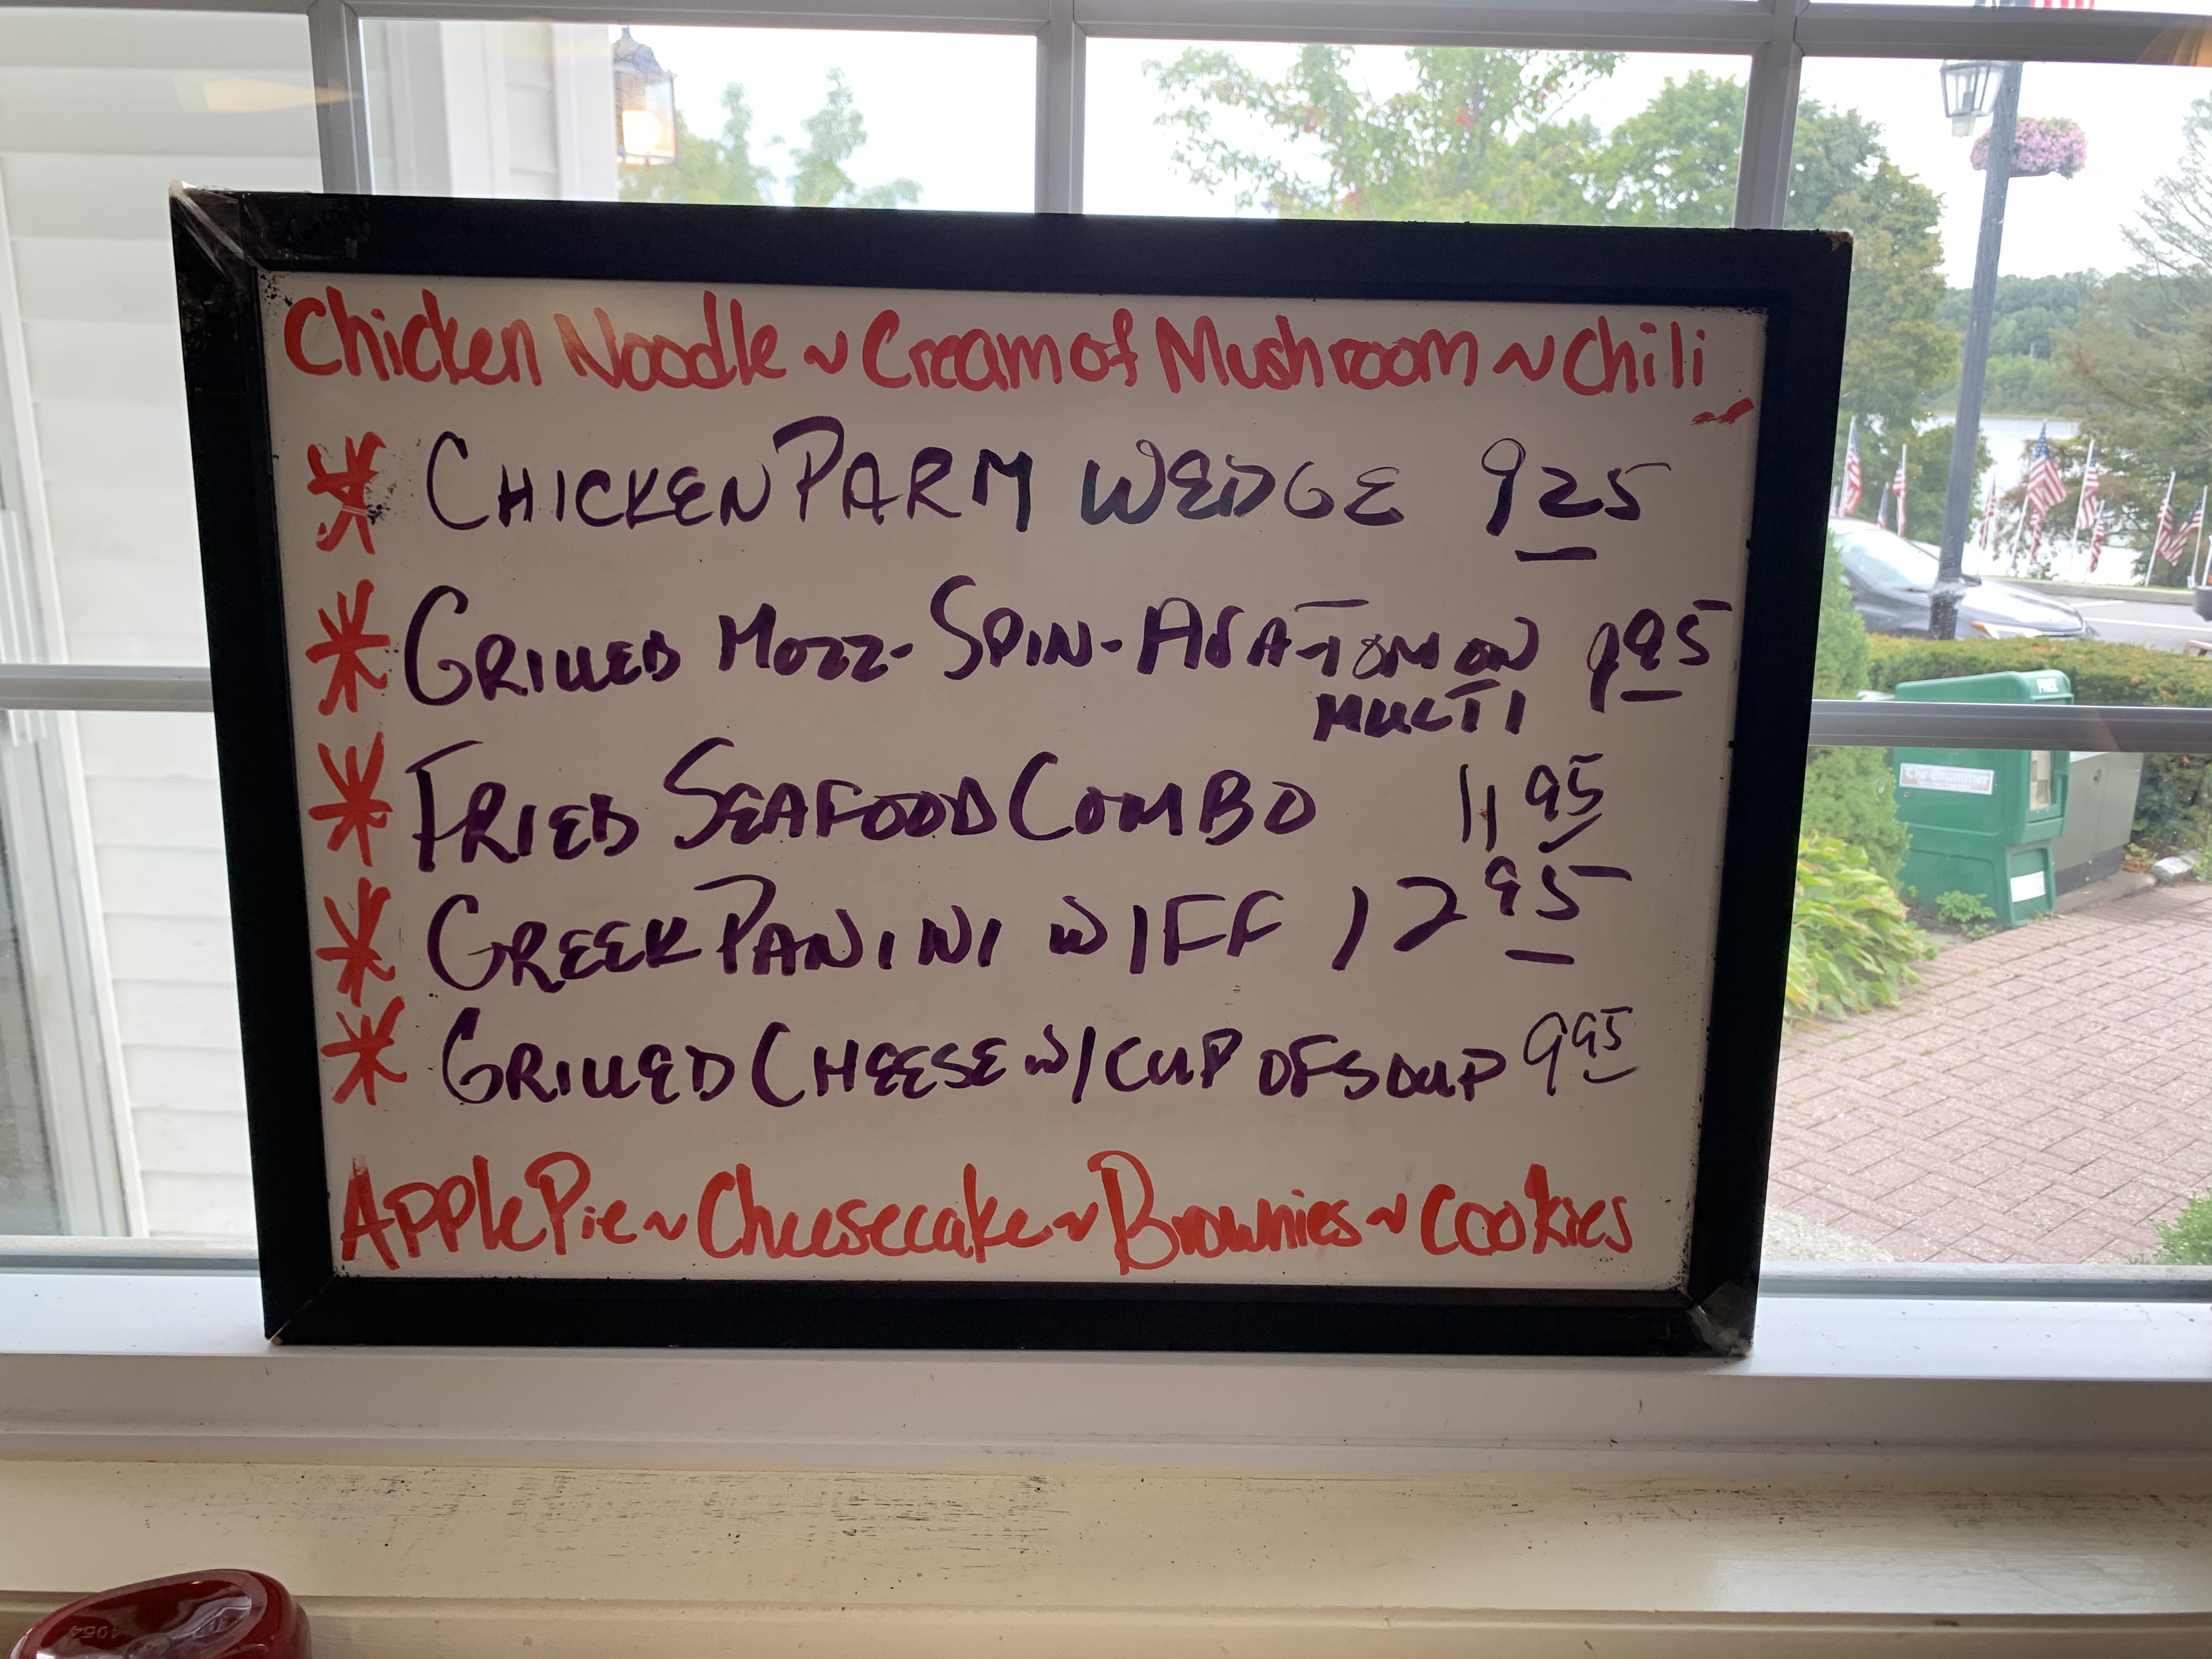 Chicken Noodle ~ Cream of Mushroom ~ Chili
* CHICKEN PARM WEDGE 925
* GRILLED MOZZ - SPIN - AVA - TOM ON 995
MULTI
* FRIED SEAFOOD COMBO 11 95
* GREEK PANINI W/FF 12 95
* GRILLED CHEESE W/CUP OF SOUP 9 95
Apple Pie ~ Cheesecake ~ Brownies ~ Cookies
FREE
The Examiner